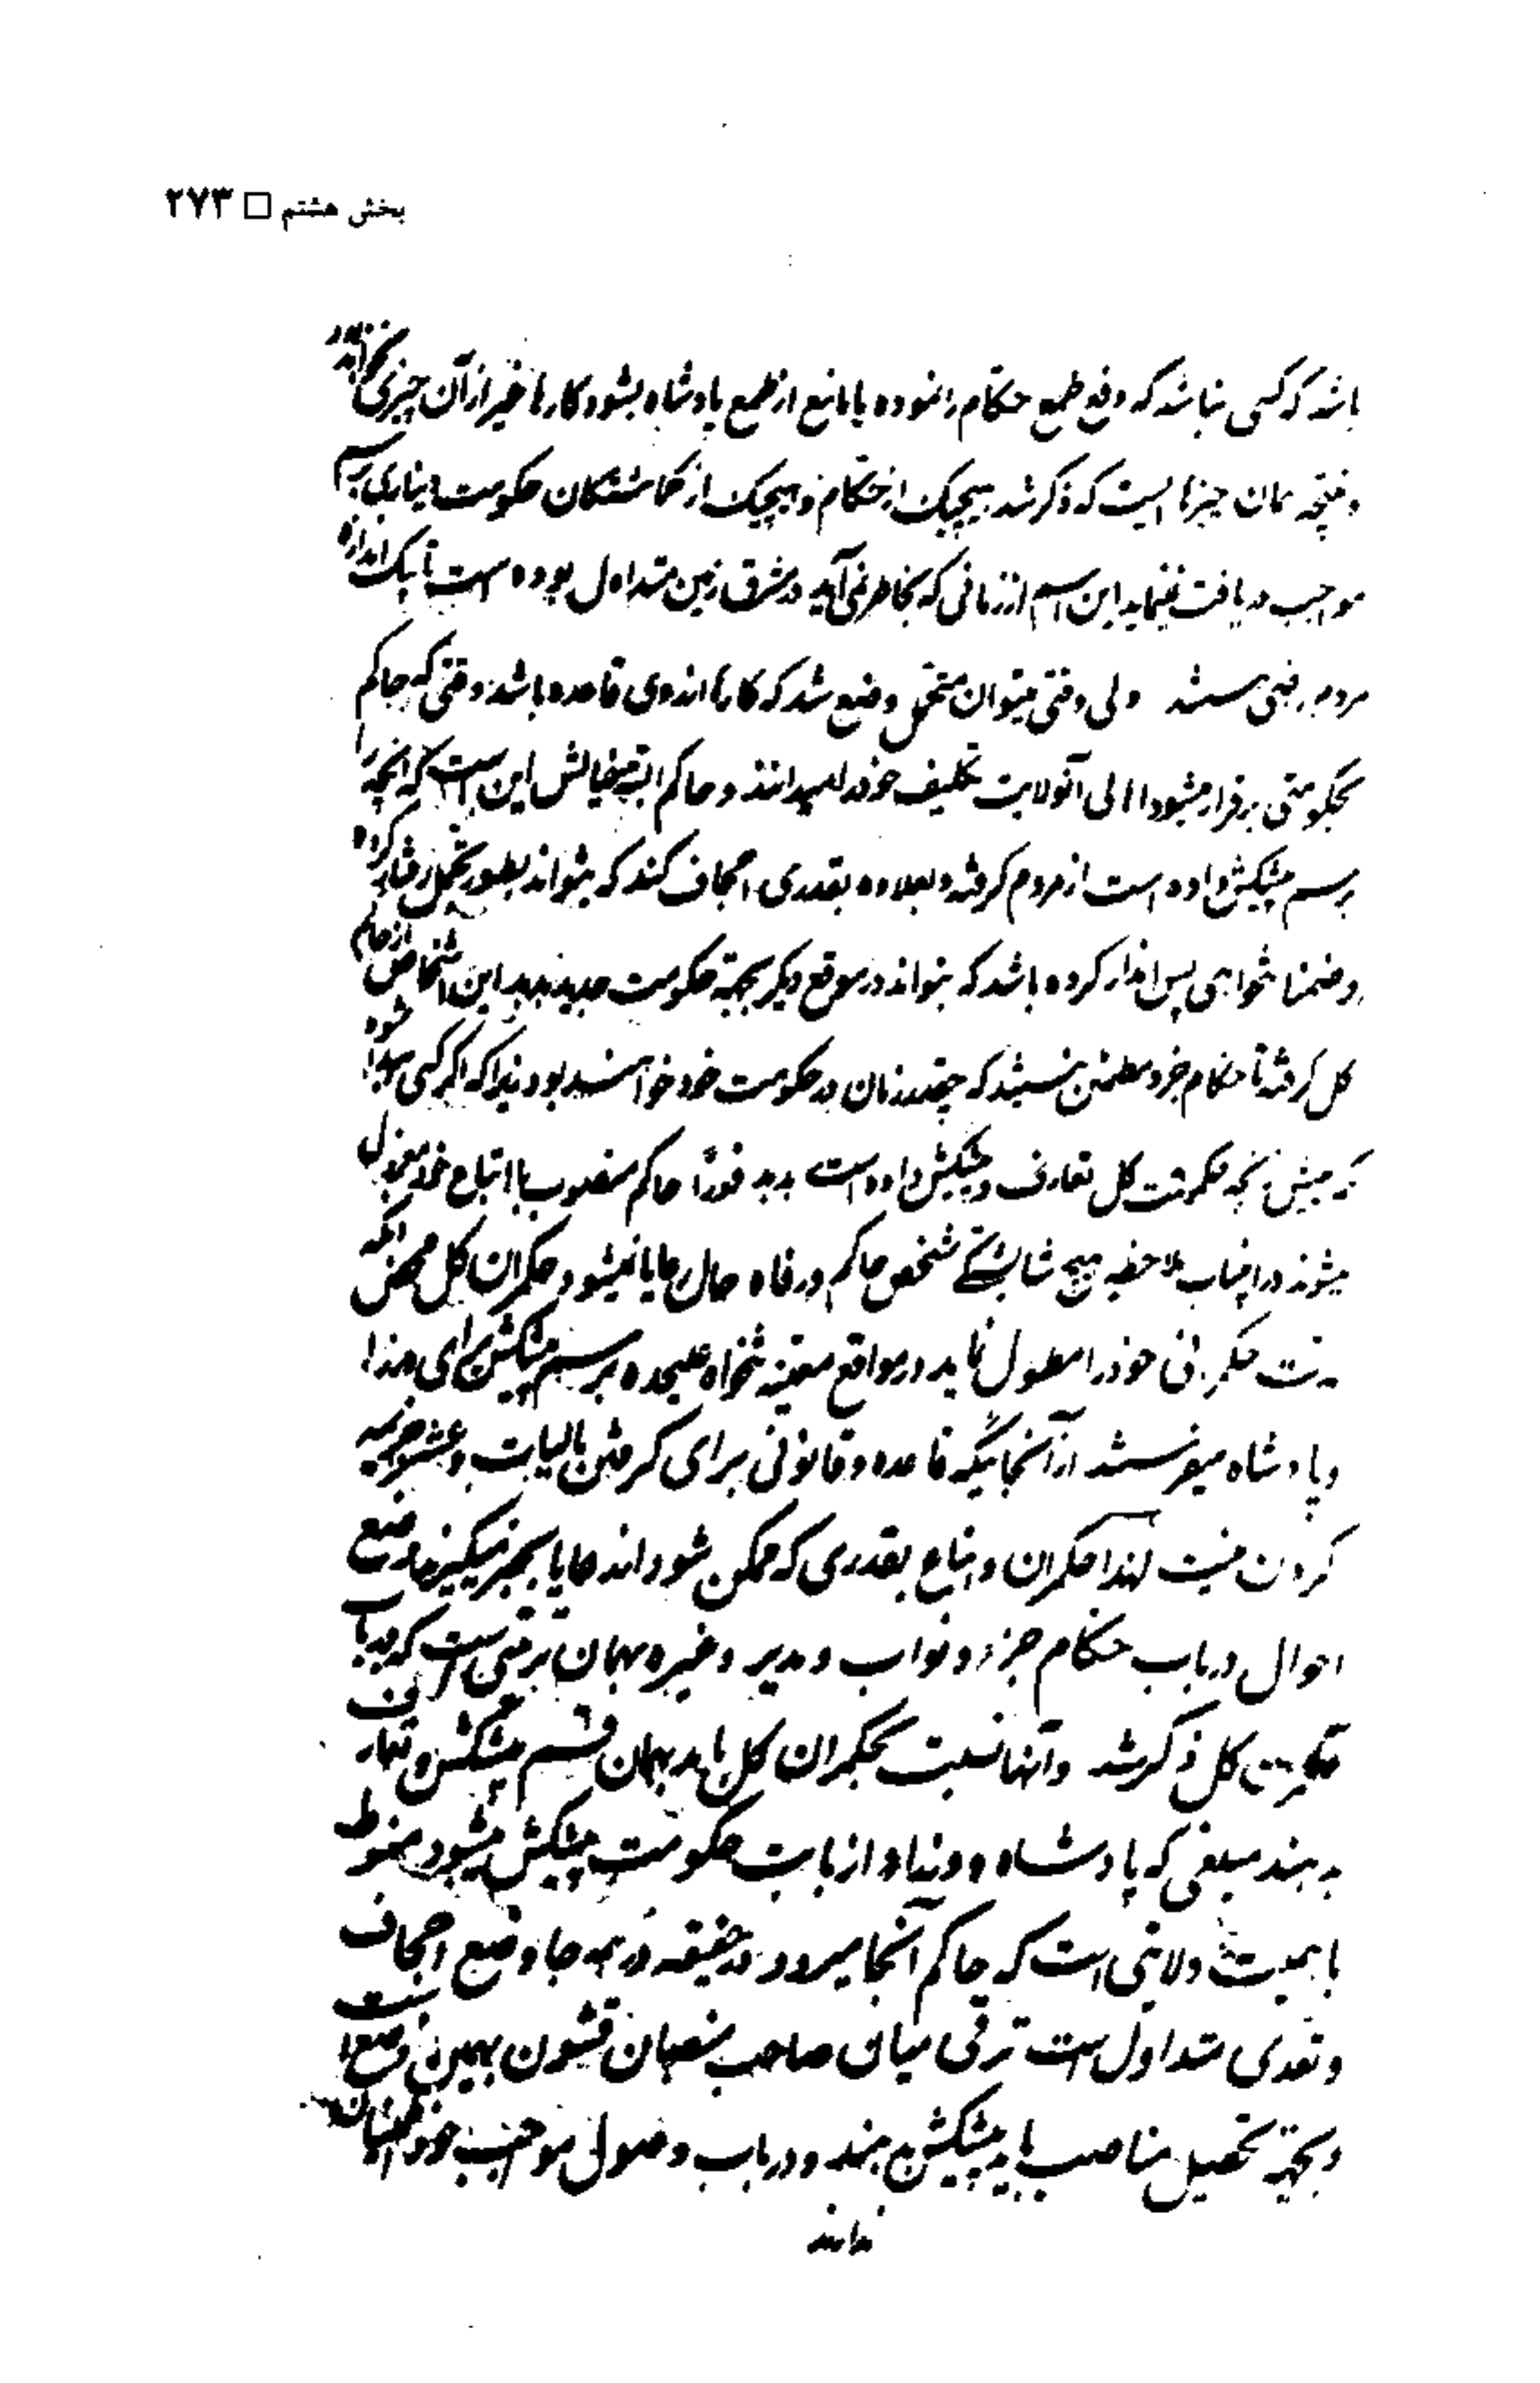 بخش هشتم □ ۲۷۳
باشد که کسی نباشد که دفع طمع حکام را نموده یا مانع از طمع پادشاه بشود کارها خیر از آن چیزی نخواهد بود
و نتیجه همان چیزها است که ذکر شد هیچیک از حکام و هیچیک از گماشتگان حکومت ایشان برسم
مواجب دریافت نمینماید این رسم از زمانی که بخاطر نمی‌آید در مشرق زمین متداول بوده است تا یک اندازه
مردم راضی هستند ولی وقتی میتوان متحمل وضع شد که کارها از روی قاعده باشد وقتی که حاکم
بحکومتی برقرار میشود اهالی آنولایت تکلیف خود را میدانند و حاکم البته خیالش این است که آنچه را
برسم پیشکش داده است از مردم گرفته و بعلاوه بقدری اجحاف کند که بتواند بطور تجمل رفتار کرده
و ضمنا تنخواهی پس انداز کرده باشد که بتواند در موقع دیگر بجهة حکومت جدید بدهد این اشخاص از حاکم
کل گرفته تا حکام جزو مطمئن نیستند که چقدر زمان در حکومت خود خواهند بود زیرا که اگر کسی پیدا شود
که بیش از آنچه حکومت کل تعارف و پیشکش داده است بدهد فوراً حاکم منصوب با اتباع خود معزول
میشوند در اینباب ملاحظه هیچ شایستگی شخص حاکم و رفاه حال رعایا نمیشود حکمران کل محض آنکه
مدت حکمرانی خود را مطول نماید در مواقع معینه تنخواه علیحده برسم پیشکش برای وزرا
و پادشاه میفرستد از آنجائیکه قاعده و قانونی برای گرفتن مالیات و عشر و جریمه
کردن نیست لهذا حکمران و اتباع بقدری که ممکن شود از رعایا بجبر میگیرند وضع
احوال در باب حکام جزو و نواب و مدیر و غیره بهمان ترتیبی است که در باب
حکومت کل ذکر شد و آنها نسبت بحکمران کل باید بهمان قسم پیشکش و تعارف
بدهند مبلغی که پادشاه و وزراء از بابت حکومت پیشکش میشود منوط
باهمیت ولایتی است که حاکم آنجا میرود در حقیقه در همه جا وضع اجحاف
و تعدی متداول است ترقی میان صاحب منصبان قشون بهمین وضع است
و بجهة تحصیل مناصب باید پیشکش بدهند و در باب وصول مواجب خود اطمینان
ندارند